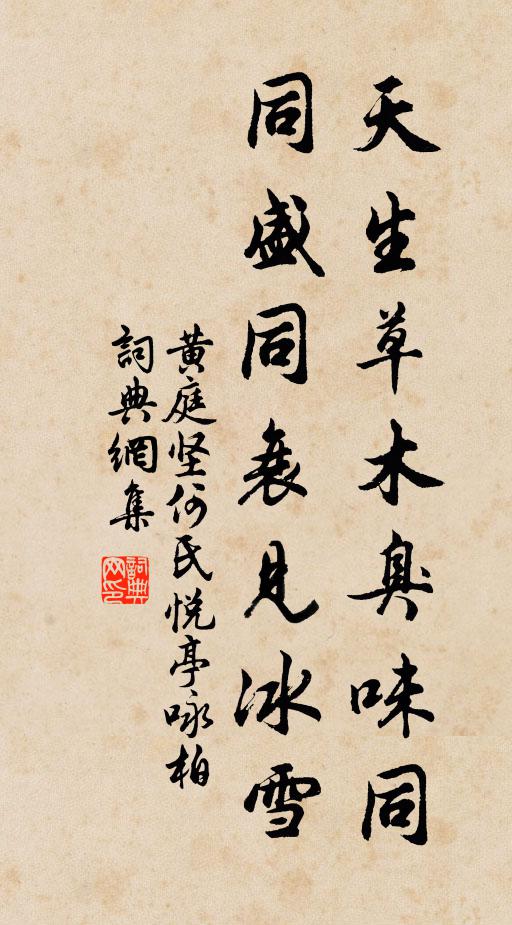 天生草木臭味同
同盛同衰見冰雪
黄庭坚何氏悦亭咏柏
詞典網集
詞典网印